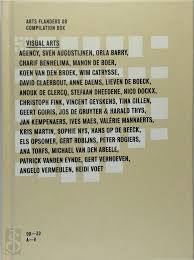 ARTS FLANDERS 08
COMPILATION BOX
VISUAL ARTS
AGENCY, SVEN AUGUSTIJNEN, ORLA BARRY,
CHARIF BENHELIMA, MANON DE BOER,
KOEN VAN DEN BROEK, WIM CATRYSSE,
DAVID CLAERBOUT, ANNE DAEMS, LIEVEN DE BOECK,
ANOUK DE CLERCQ, STEFAAN DHEEDENE, NICO DOCKX,
CHRISTOPH FINK, VINCENT GEYSKENS, TINA GILLEN,
GEERT GOIRIS, JOS DE GRUYTER & HARALD THYS,
JAN KEMPENAERS, IVES MAES, VALÉRIE MANNAERTS,
KRIS MARTIN, SOPHIE NYS, HANS OP DE BEECK,
ELS OPSOMER, GERT ROBIJNS, PETER ROGIERS,
ANA TORFS, MICHAEL VAN DEN ABEELE,
PATRICK VANDEN EYNDE, GERT VERHOEVEN,
ANGELO VERMEULEN, HEIDI VOET
A—V